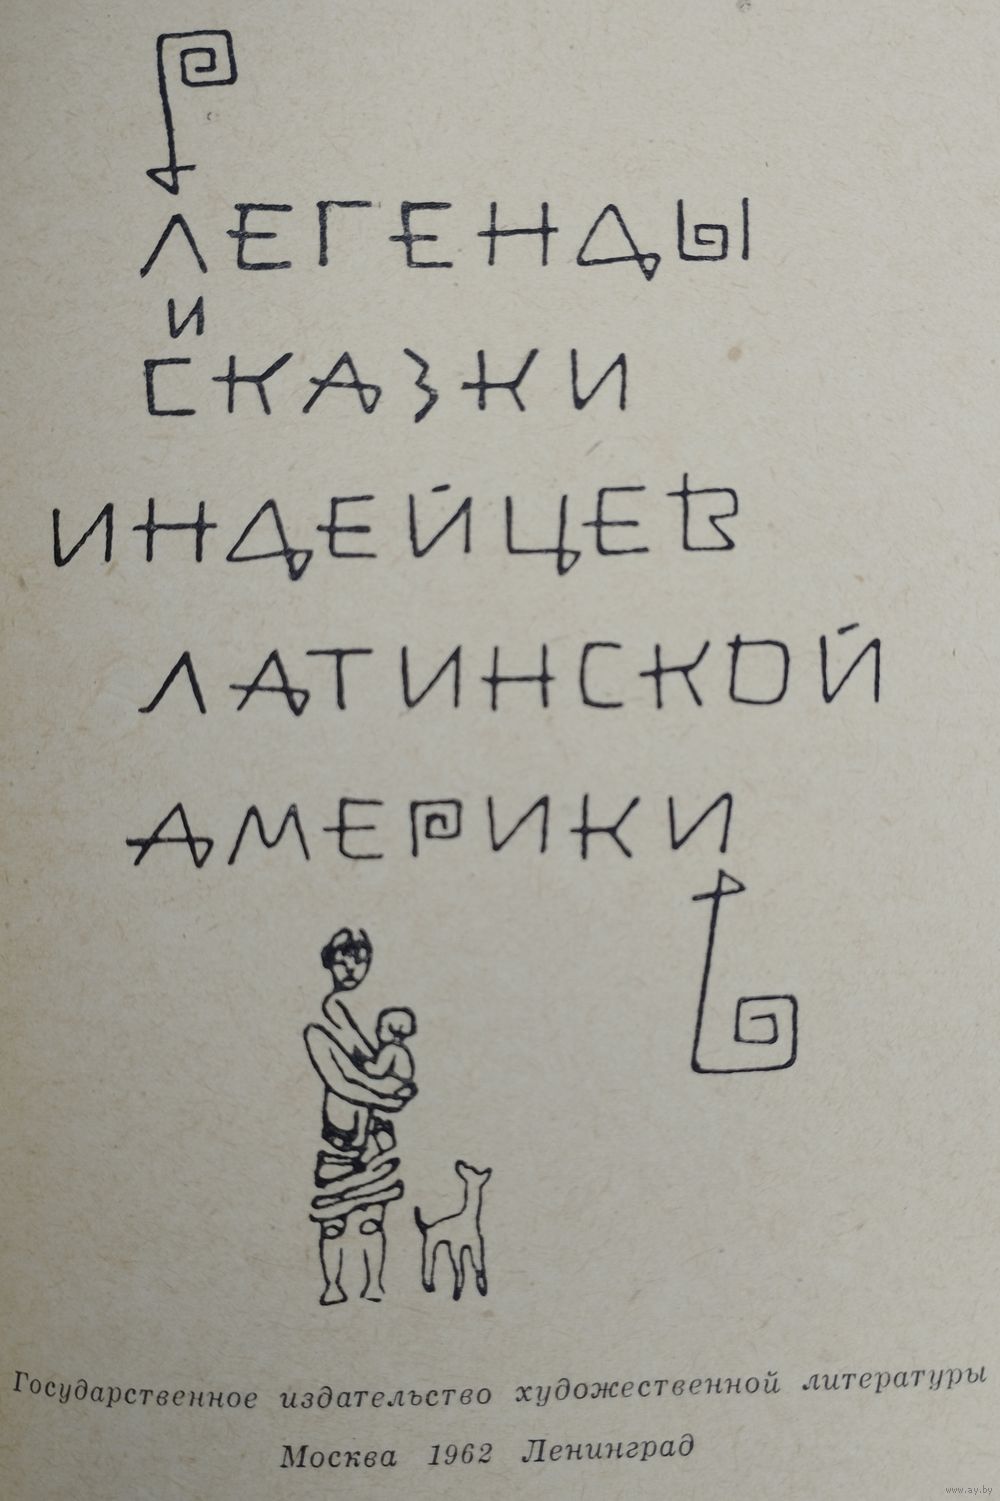 ЛЕГЕНДЫ
И
СКАЗКИ
ИНДЕЙЦЕВ
ЛАТИНСКОЙ
АМЕРИКИ
Государственное издательство художественной литературы
Москва 1962 Ленинград
www.ay.by